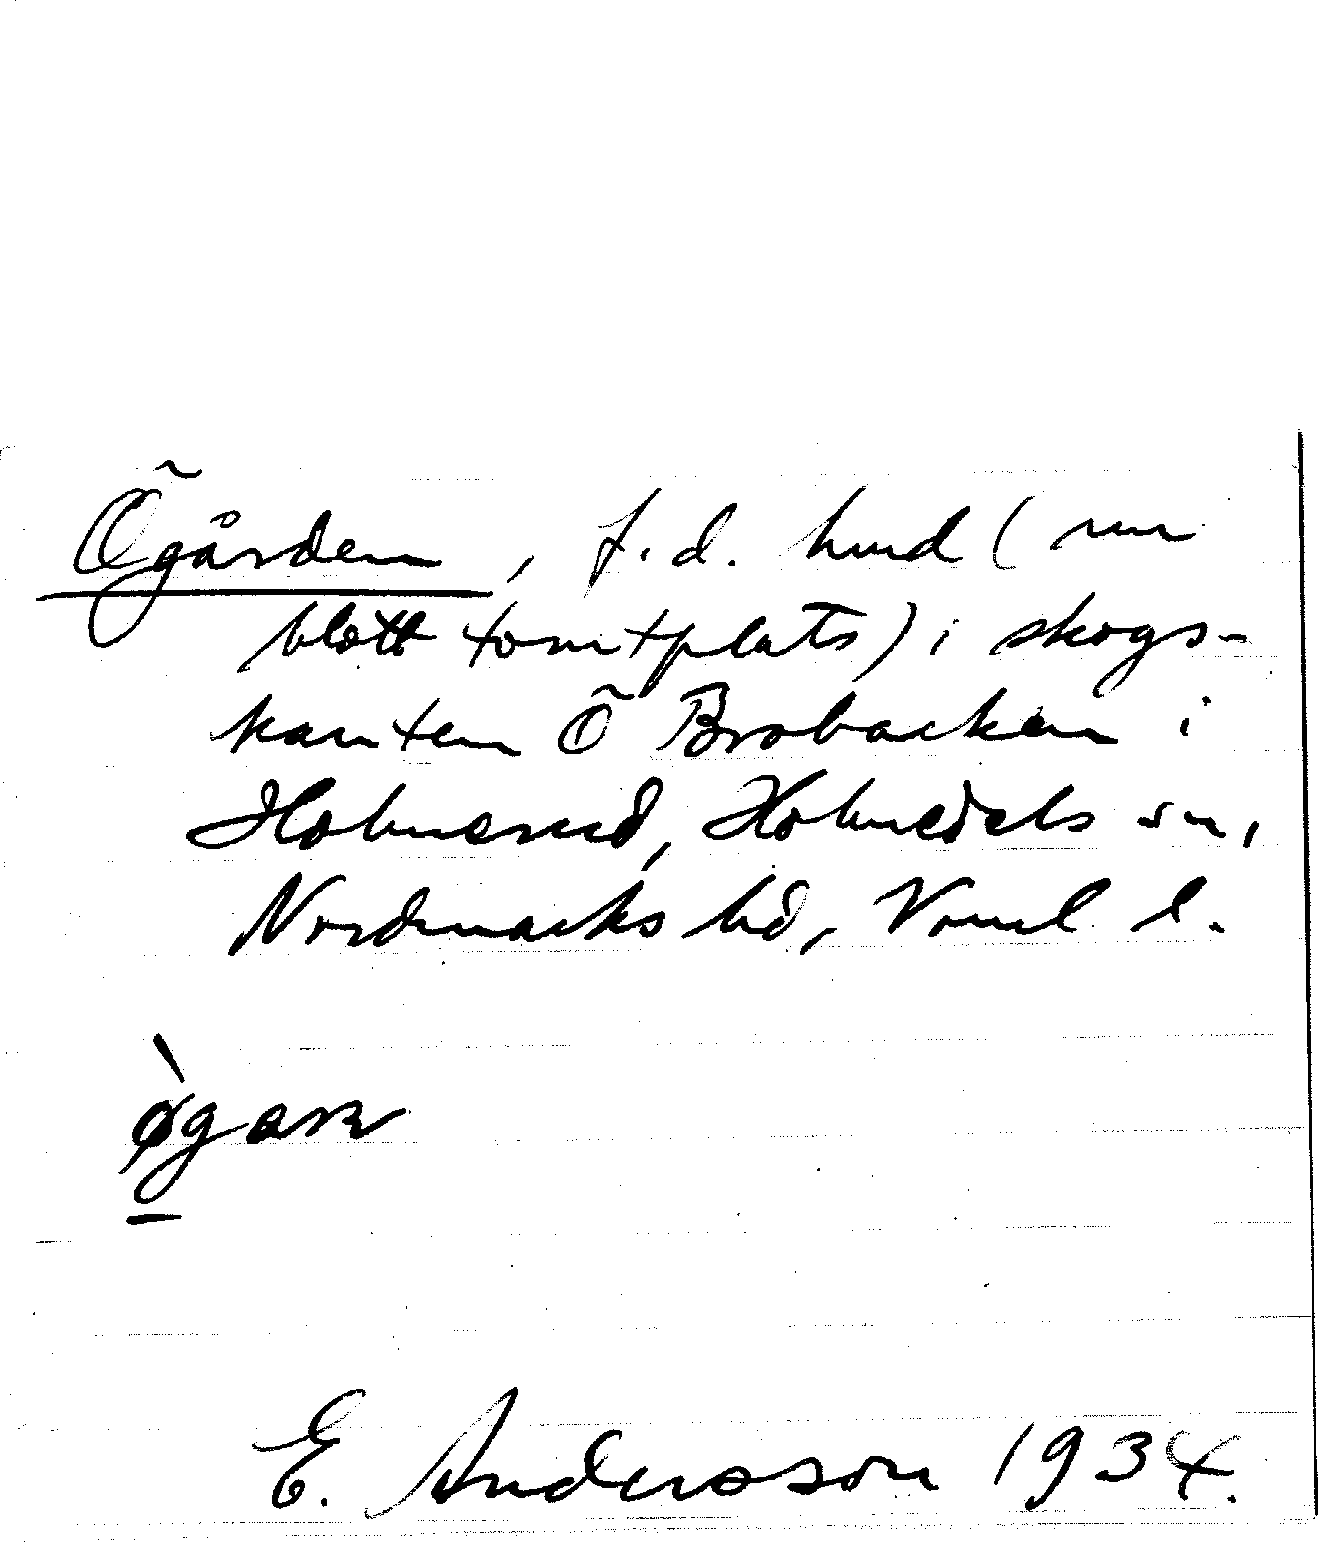 Ögården, f.d. hmd (nu
blott tomtplats) i skogs-
kanten Ö Brobacken i
Holmerud, Holmedals sn,
Nordmarks hd, Vrml l.
øgaṛn
E. Andersson 1934.